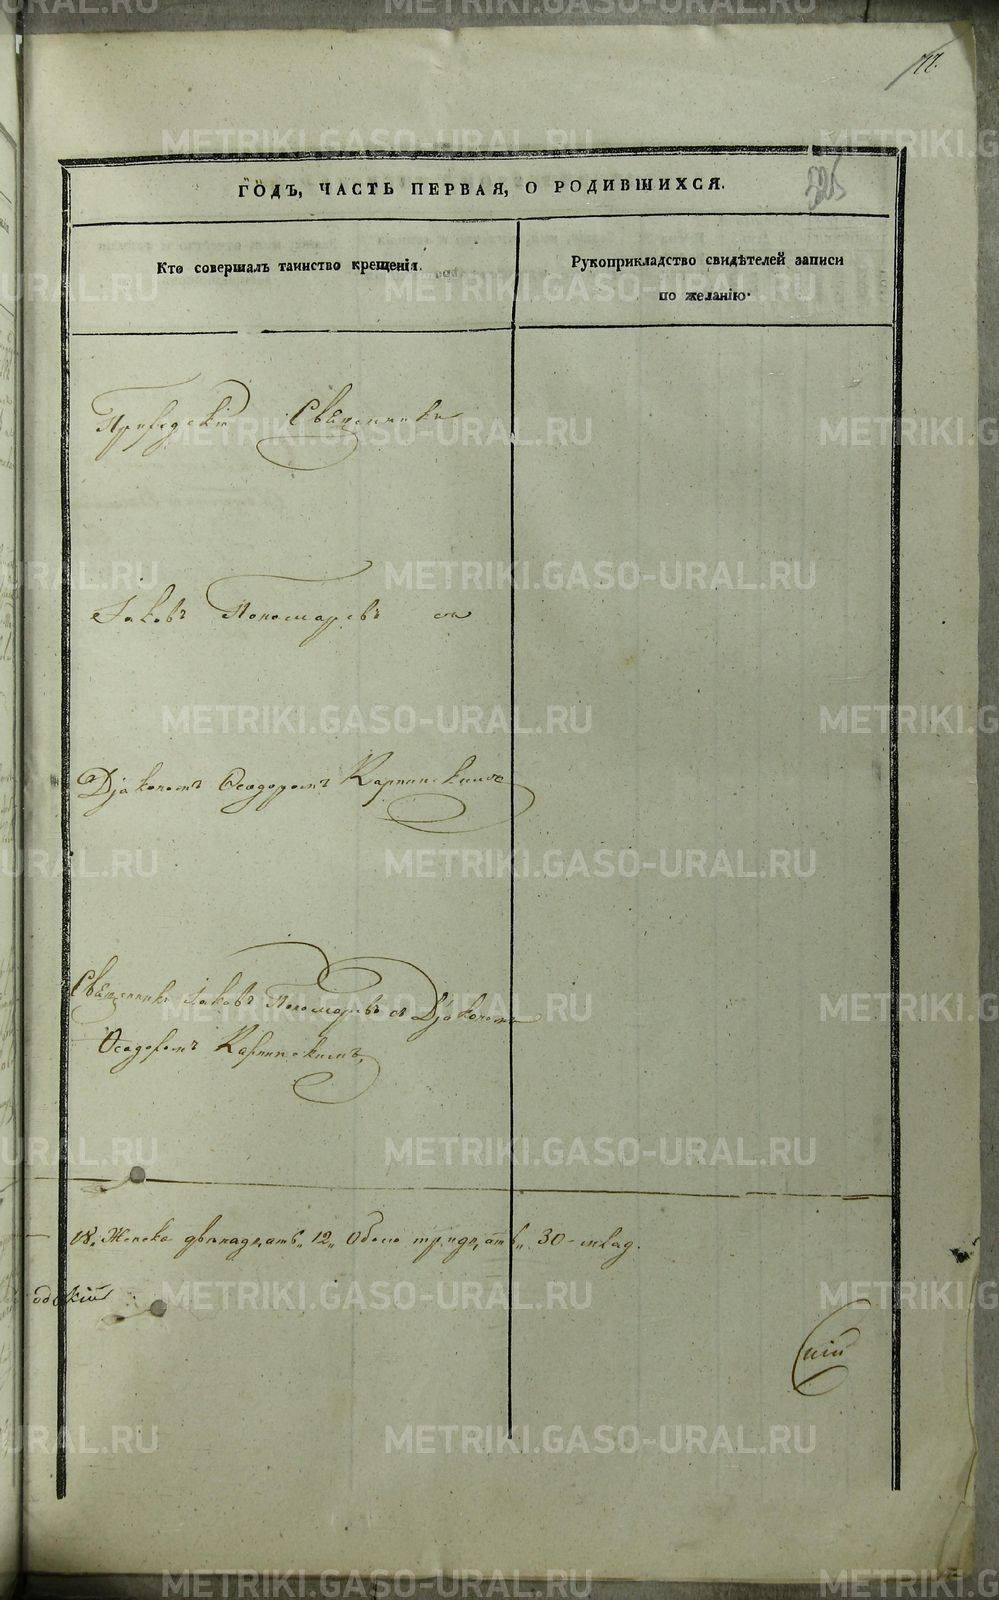 77.
325
ГОДЪ, ЧАСТЬ ПЕРВАЯ, О РОДИВШИХСЯ.
Кто совершалъ таинство крещенія.
Рукоприкладство свидѣтелей записи
по желанію.
Священникъ
Іаковъ Пономаревъ съ
Діакономъ Ѳеодоромъ Карпинскимъ
Священникъ Іаковъ Пономаревъ съ Діакономъ
Ѳеодоромъ Карпинскимъ,
18. Женска двѣнадцать „12„ Обоего тридцать „30 – млад.
METRIKI.GASO-URAL.RU